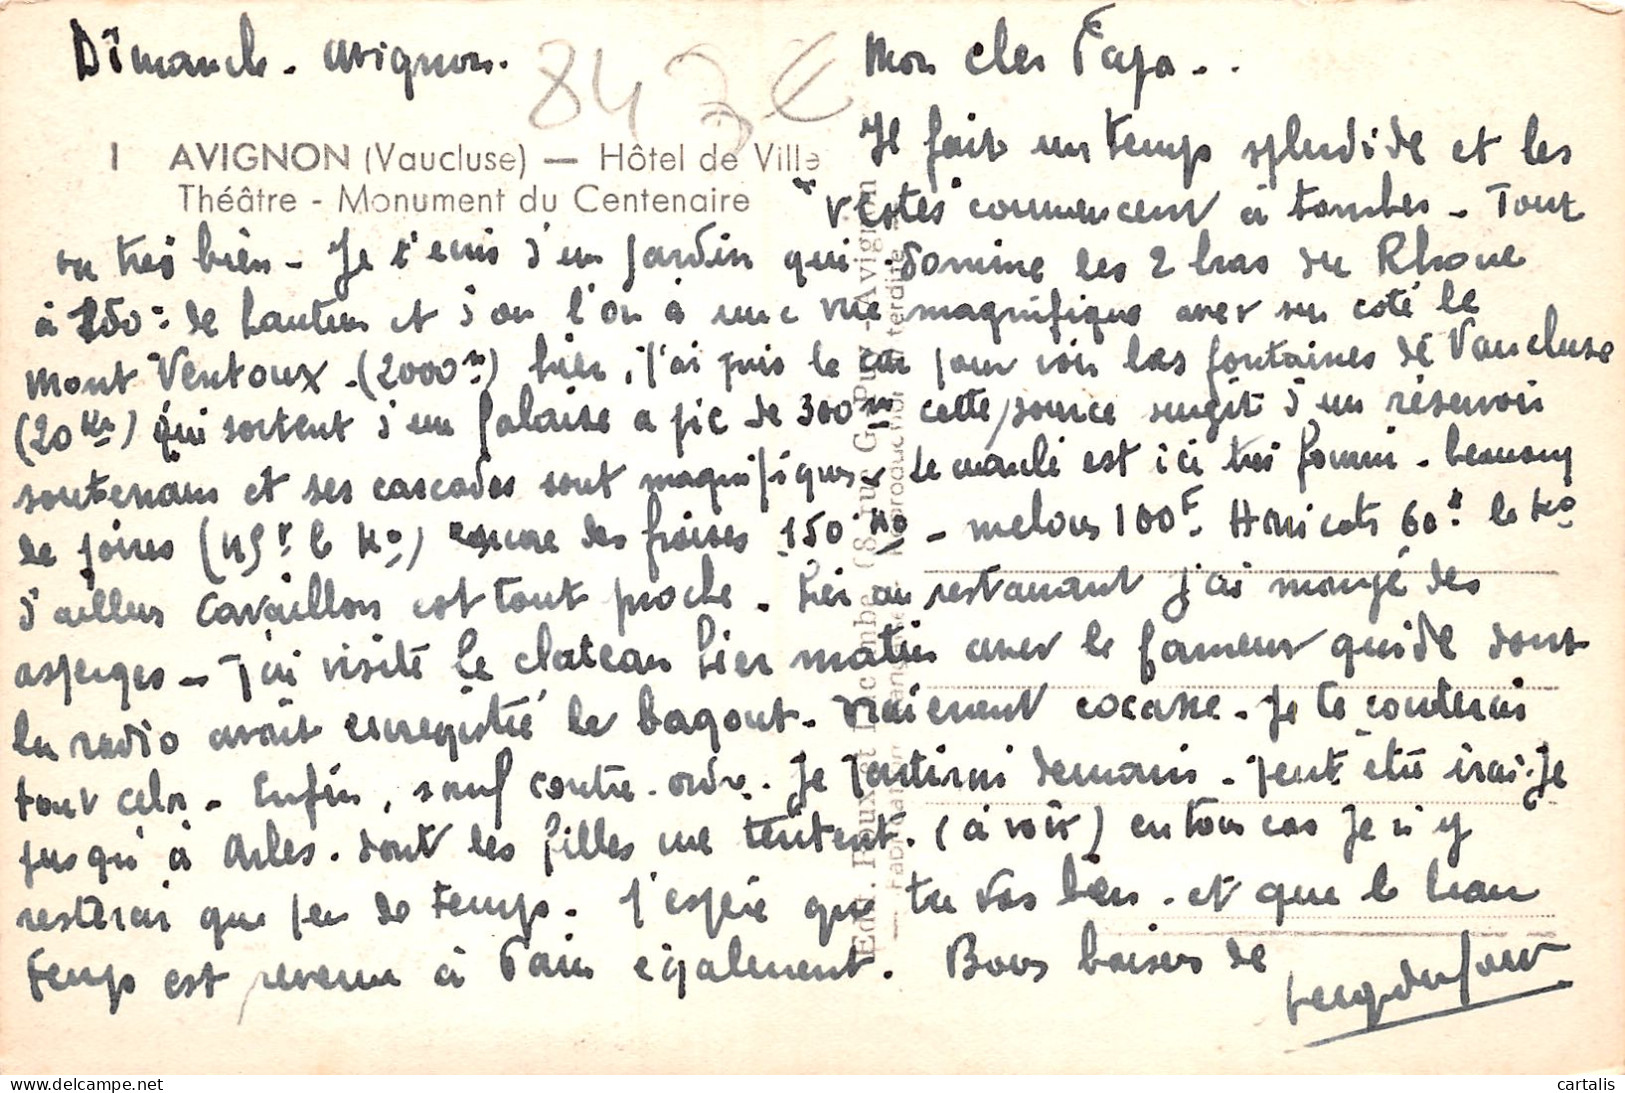 Dimanche - Avignon.
84 3€
Mon cher Papa - .
1 AVIGNON (Vaucluse) — Hôtel de Ville
Théâtre - Monument du Centenaire
Il fait un temps splendide et les
"vestes" commencent à tomber - Tout
va très bien - Je t'écris d'un jardin qui domine les 2 bras du Rhone
à 150m de hauteur et d'où l'on à une vue magnifique avec sur coté le
Mont Ventoux - (2000m) hier, j'ai pris le car pour voir les fontaines de Vaucluse
(20 Km) qui sortent d'un falaise a pic de 300m cette source surgit d'un réservoir
souterrain et ses cascades sont magnifiques - Le marché est ici très fourni - beaucoup
de poires (45F le Ko) encore des fraises 150 Ko - melons 100F. Haricots 60F le Ko
d'ailleurs Cavaillon est tout proche - hier au restaurant j'ai mangé des
asperges - J'ai visité le chateau hier matin avec le fameux guide dont
la radio avait enregistré le bagout - vraiement cocasse - Je te conterai
tout cela - Enfin, sauf contre-ordre - Je partirai demain - peut être irai-je
jusqu'à Arles - dont les filles me tentent. (à voir) en tous cas Je n'y
resterai que peu de temps - J'espère que tu vas bien - et que le beau
temps est revenu à Paris également. Bons baisers de
Edit. Roux et Decombe (8, rue G. Puy - Avignon
— Fabrication française - Reproduction interdite
cartalis